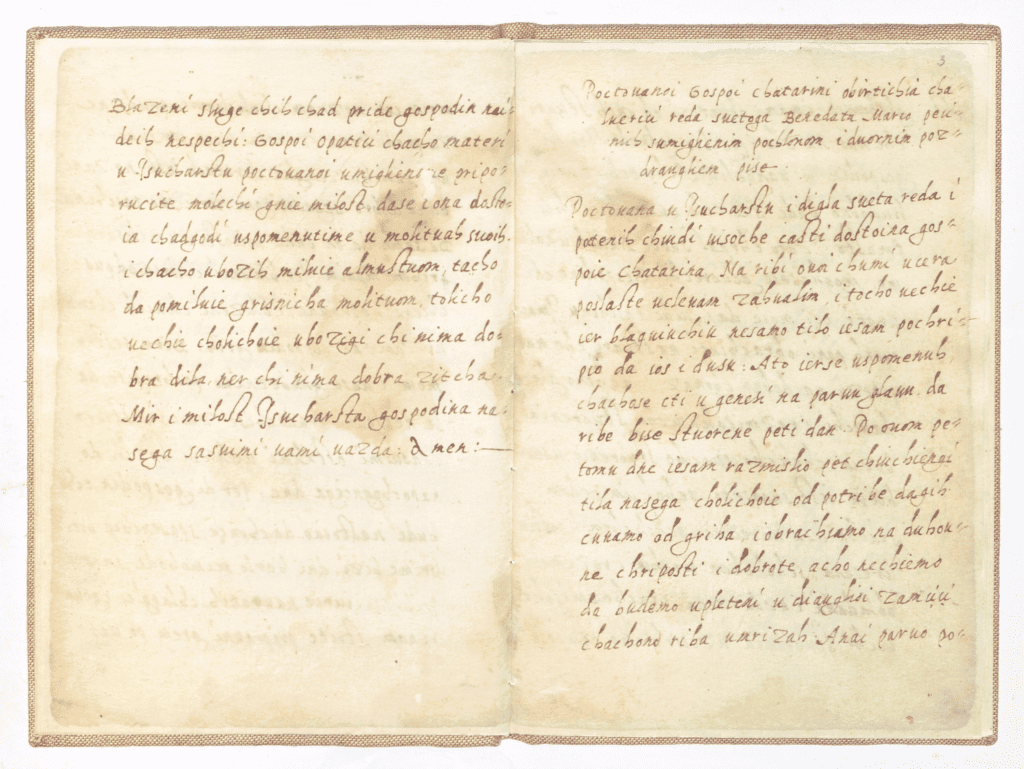 Blazeni sluge chih chad pride gospodin nai-
deih nespechi: Gospoi opatiċi chacho materi
u Isucharstu poctovanoi umighens e pripo-
rucite molechi gnie milost, dase i ona dosto-
ia chadgodi uspomenutime u molituah suoih.
i chacho ubozih miluie almustuom, tacho
da pomiluie grisnicha molituom, tolicho
uechie cholichoie ubozigi chi nima do-
bra dila ner chi nima dobra zitcha.
Mir i milost Isucharsta gospodina na-
sega sasuimi uami uazda: Amen:
3
Poctouanoi Gospoi Chatarini obirtichia cha-
lueriċi reda suetoga Benedata Marco peċi-
nich sumighenim pochlonom i duornim poz-
draughem pise
Poctouana u Isucharstu i digla sueta reda i
potenih chiudi uisoche casti dostoina gos-
poie Chatarina. Na ribi ouoi chumi ucera
poslaste ueleuam zahualim, i tocho uechie
ier blaguinchiu nesamo tilo iesam pochri-
pio da ios i dusu: Ato ierse uspomenuh
chachose cti u genesi na paruu glauu da
ribe bise stuorene peti dan. Po onom pe-
tomu dne iesam razmislio pet chiuchiengi
tila nasega cholichoie od potribe dagih
cuuamo od griha, i obrachiamo na duhou-
ne chriposti i dobrote, acho nechiemo
da budemo upleteni u diauglsi zamiui
chachono riba umrizah. Anai paruo po-